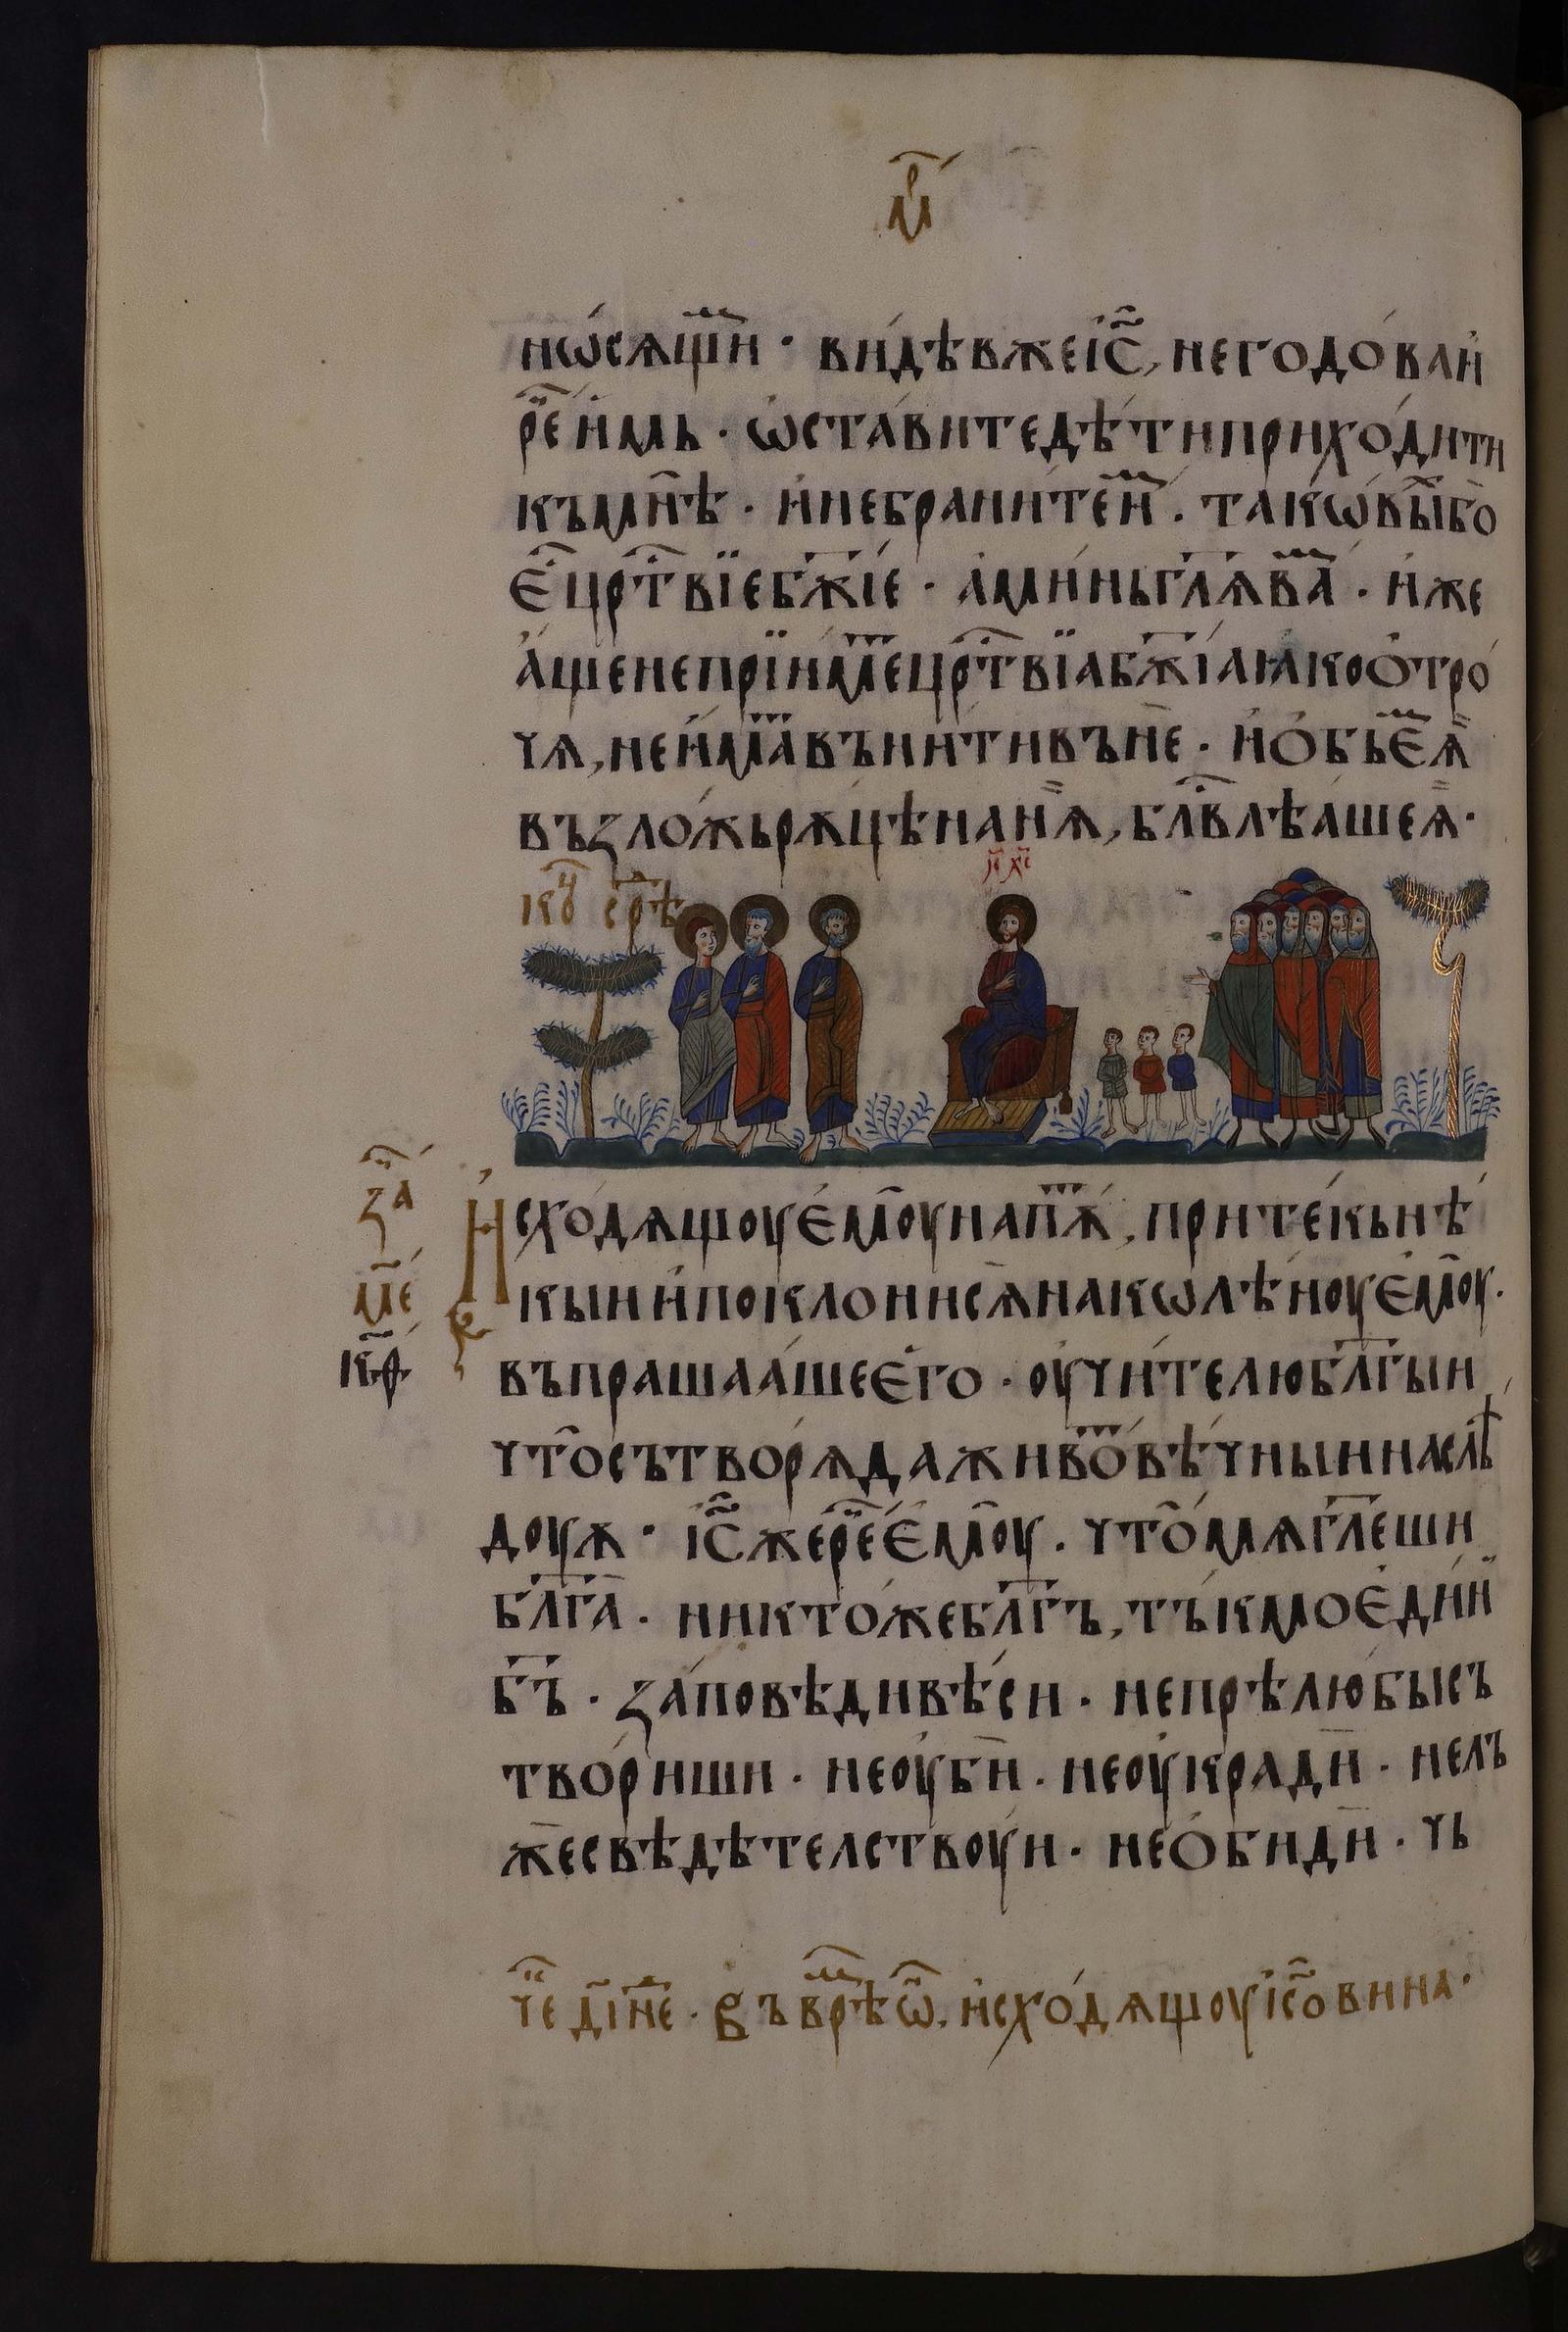 мр҃
нѡ́сѧщїи҆ · ви́дѣвжеі҆с҃, негодо́ваи҆
рⷱ҇еи҆мь · ѡ҆ста́витедѣ́типриходи́ти
къмн҃ѣ · и҆небрани́теи҆ⷯ · такѡ́выⷯбо
є҆ⷭ҇црⷭ҇твїебж҃їе · а҆ми́ньгл҃ѧ҆ваⷨ · и҆же
а҆́щенепрїи́меⷮцрⷭ҇твїабж҃їаꙗ҆коѻ҆тро́
чѧ, неи҆́маⷮвъни́тивън҃е · и҆ѻ҆бьєⷨѧ҆
възло́жьрѫцѣнан҃ѧ, блⷭ҇влѣ́ашеѧ҆ ·
і҃с х҃с
кⷣ҇ꙋ срⷣ҇ѣ
за҃ⷱ҇
м҃е
кф
И҆сходѧщоує҆м҃оунапⷮѫ, прите́кьнѣ́
кыи и҆поклонисѧ҃накѡлѣ́ноує҆м҃оу ·
въпрашаа́шеє҆го · оу҆чи́телюбл҃гыи
чт҃осътворѧ́даживоⷮвѣ́чныинаслѣ́
доуѫ · і҆с҃жерⷱ҇еє҆м҃оу · чт҃о́мѧгл҃еши
бл҃га · никто́жебл҃гъ, тъ́кмоє҆ди́нⷩ
бг҃ъ · за́повѣдивѣ́си · непрѣлюбы́съ
тво́риши · неоу҆би҃ · неоу҆кради҃ · нелъ
ж҃есвѣдѣтелствоуи · неѻ҆биди҃ · чь
чⷭ҇е дїн҃е · въврⷨѣѡ҆ⷩ, и҆сходѧщоуі҆с҃овина ·